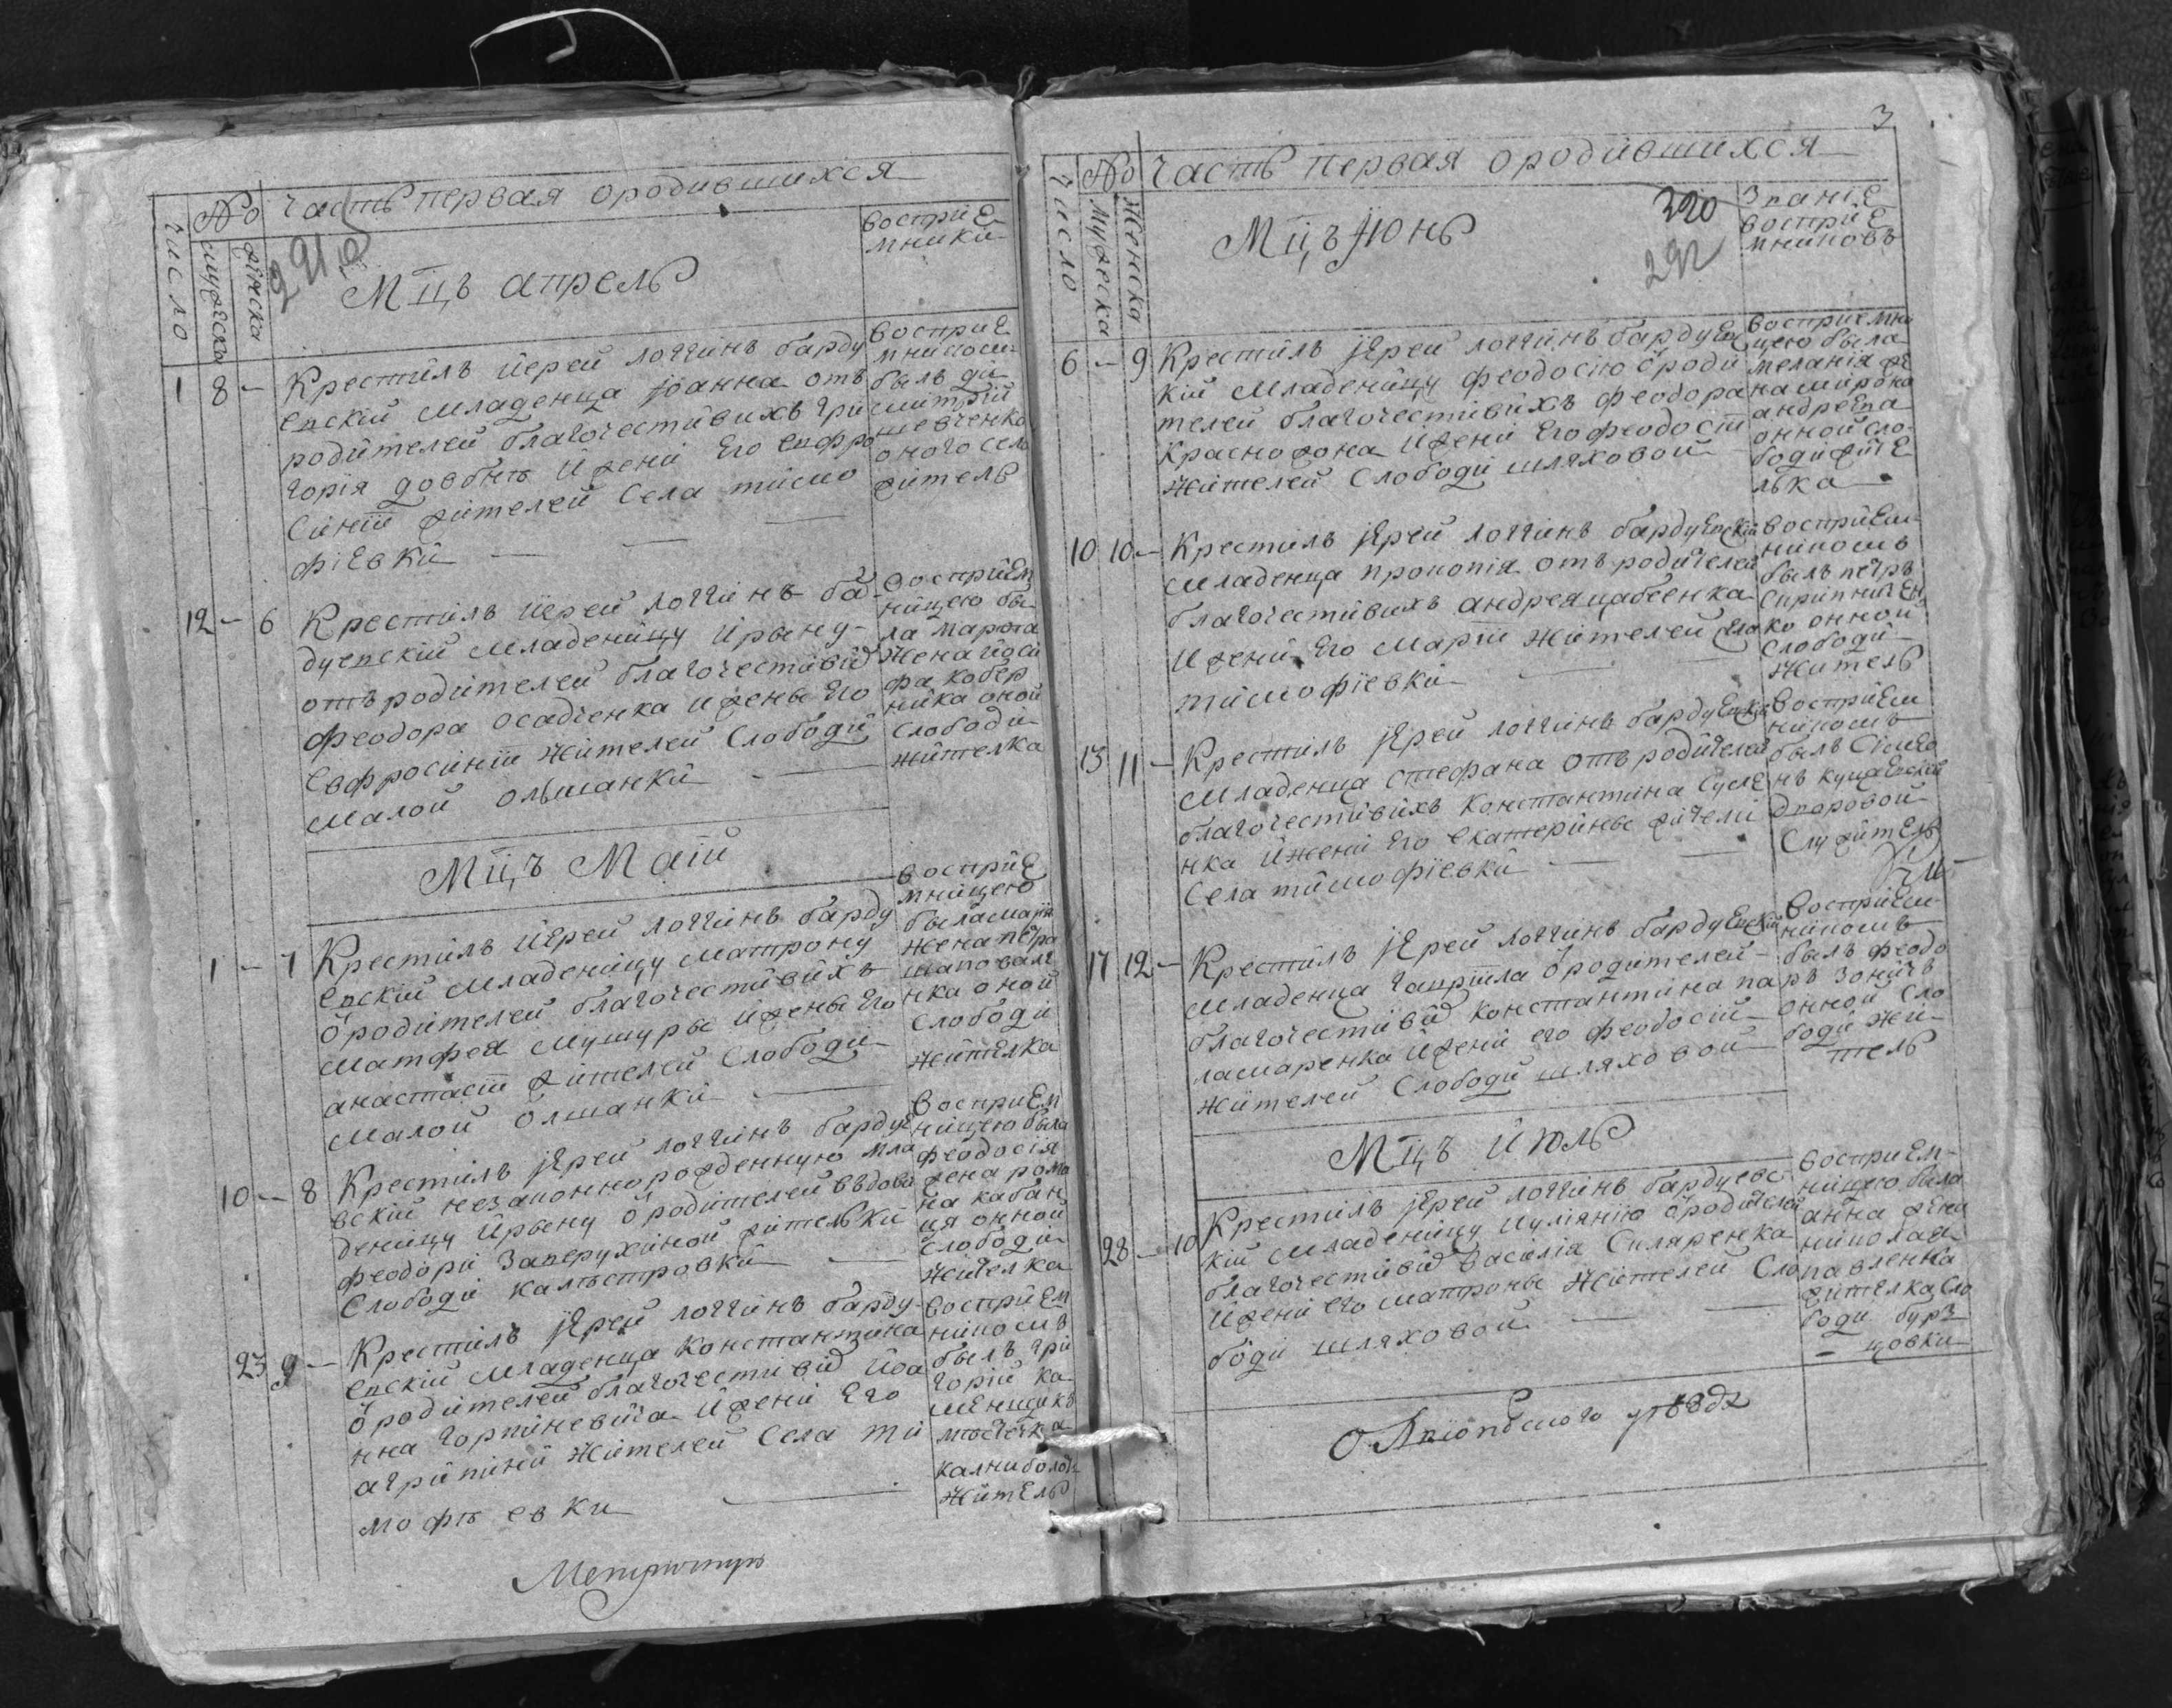 часть первая ородившихся
No
число
мужеска
женска
Мцъ апрель
восприе
мники
1 8 -
Крестилъ иерей логгинъ барду
евскій младенца іоанна отъ
родителей благочестивихъ гри
горія довбнъ и жени его евфро
синіи жителей села тимо
фіевки
восприе
мникомъ
былъ ди
митрій
шевченко
оного села
житель
12 - 6
Крестилъ иерей логгинъ ба
дуевскій младеницу ирыну
отъ родителей благочестивій
феодора осадченка и жены его
Евфросиніи жителей слободи
малой ольшанки
восприем
ницею бы
ла марфа
жена иоси
фа кобер
ника оной
слободи
жителка
Мцъ Маій
1 - 7
Крестилъ иерей логгинъ барду
евскій младеницу матрону
ѿ родителей благочестивихъ
матфея мушуры и жены его
анастасіи жителей слободи
малой олшанки
восприе
мницею
была марія
жена петра
шаповале
нка оной
слободи
жителка
10 - 8
Крестилъ іерей логгинъ бардуе
вскій незаконнорожденную мла
деницу ирыну ѿ родителей вдови
феодори жительки
слободи калъстровки
восприем
ницею была
феодосія
жена рома
на кабан
ця онной
слободи
жителка
23 9 -
Крестилъ іерей логгинъ барду
евскій младенца константина
ѿ родителей благочестивій иоа
нна горпиневича и жени его
агрипини жителей села ти
мофъевки
восприем
никомъ
былъ гри
горій ка
менщикъ
мъстечка
калниболот
житель
3
часть первая ородившихся
No
число
мужеска
женска
Мцъ іюнь
320
292
Званіе
восприе
мниковъ
6 - 9
Крестилъ іерей логгинъ бардуевс
кій младеницу феодосію ѿ роди
телей благочестивихъ феодора
красножона и жени его феодосіи
жителей слободи шляховой
восприемни
цею была
меланія же
на мирона
андреева
онной сло
боди жите
лька
10 10 -
Крестилъ іерей логгинъ бардуевскій
младенца прокопія отъ родителей
благочестивихъ андрея цабеенка
и жени его маріи жителей села
тимофіевки
восприем
никомъ
былъ петръ
скрипничен
ко онной
слободи
житель
13 11 -
Крестилъ іерей логгинъ бардуевскій
младенца стефана отъ родителей
благочестивихъ константина сусле
нка и жени его екатерины жителей
села тимофіевки
восприем
никомъ
былъ симео
нъ куцаевскій
дворовой
служитель
17 12 -
Крестилъ іерей логгинъ бардуевскій
младенца гавріила ѿ родителей
благочестивій константина па
ламаренка и жени его феодосіи
жителей слободи шляховой
восприем
никомъ
былъ феодо
ръ зоничъ
онной сло
боди жи
тель
Мцъ июль
28 - 10
Крестилъ іерей логгинъ бардуевс
кій младеницу иуліянію ѿ родителей
благочестивій василія скляренка
и жени его матроны жителей сло
боди шляховой
восприем
ницею была
анна жена
николая
павленка
жителка сло
боди бурз
цовки